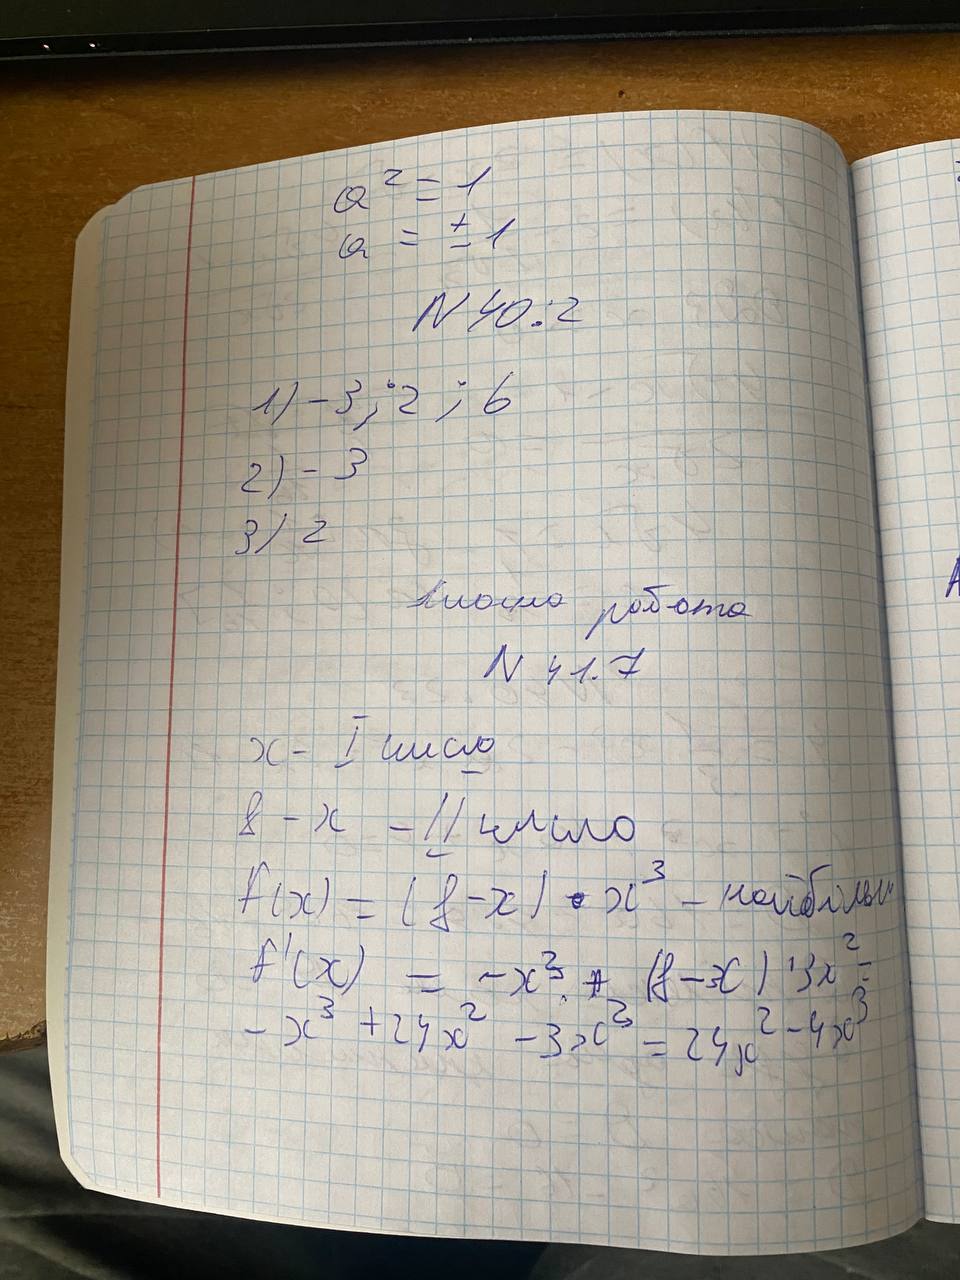 a² = 1
a = ±1
N 40.2
1) -3; 2; 6
2) -3
3) 2
робота
N 41.7
x - I число
8 - x - II число
f(x) = (8-x) • x³ - найбільш
f'(x) = -x³ + (8-x) · 3x² =
-x³ + 24x² - 3x³ = 24x² - 4x³